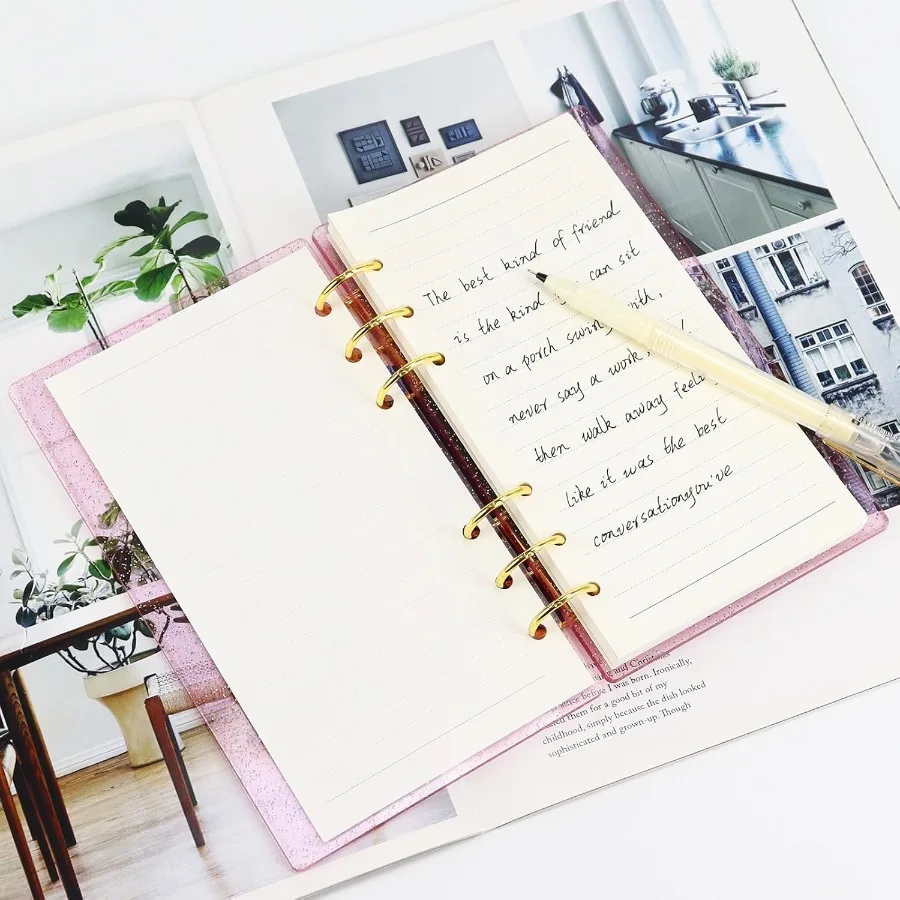 The best kind of friend
is the kind can sit
on a porch swing with,
never say a work,
then walk away feeling
like it was the best
conversationyou've
and Christmas
before I was born. Ironically,
them for a good bit of my
childhood, simply because the dish looked
sophisticated and grown-up. Though